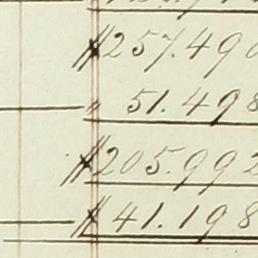 $257.490
" 51.498
$205.992
$41.198